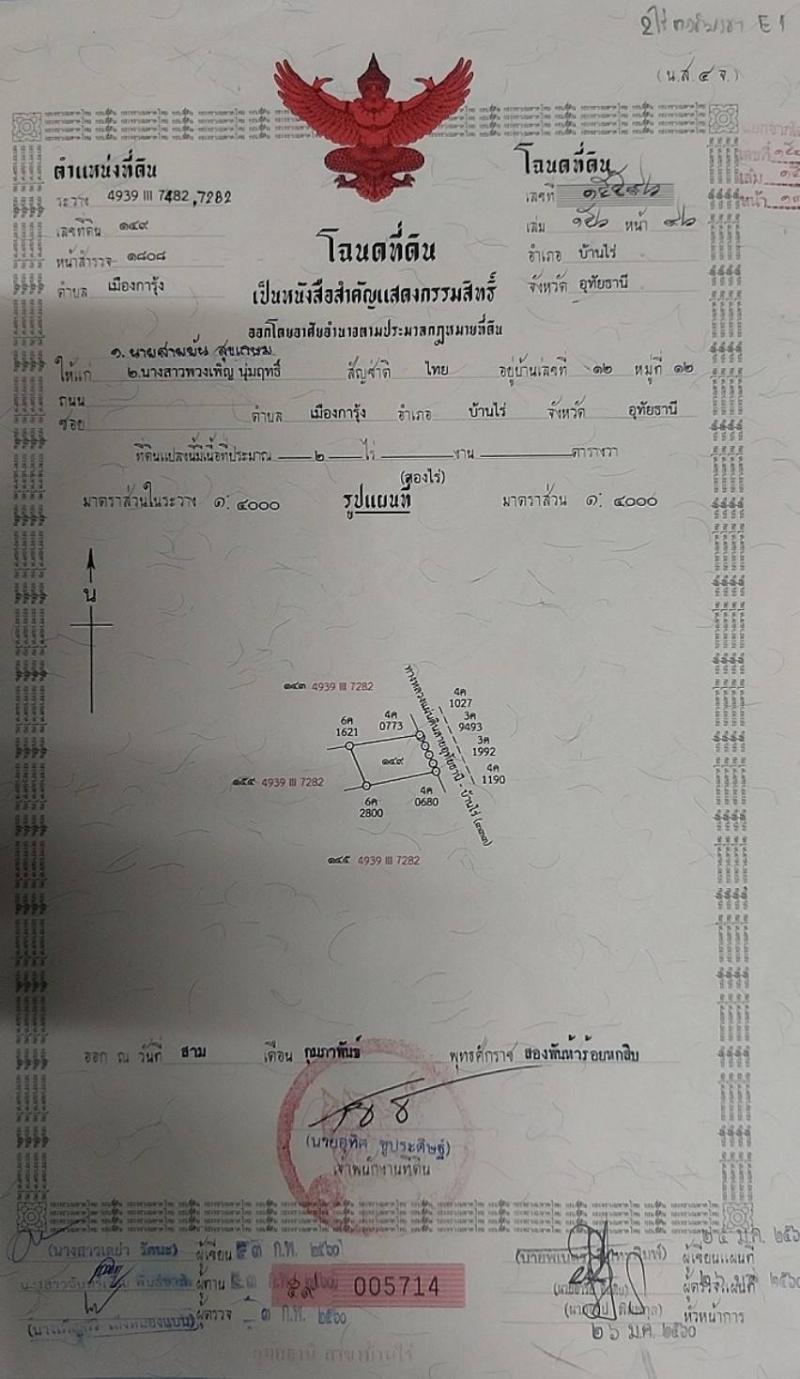 (น.ส. ๔ จ.)
ตำแหน่งที่ดิน
ระวาง 4939 III 7282
เลขที่ดิน ๑๔๙
หน้าสำรวจ ๑๘๐๘
ตำบล เมืองการุ้ง
โฉนดที่ดิน
เลขที่
เล่ม หน้า
อำเภอ บ้านไร่
จังหวัด อุทัยธานี
โฉนดที่ดิน
เป็นหนังสือสำคัญแสดงกรรมสิทธิ์
ออกโดยอาศัยอำนาจตามประมวลกฎหมายที่ดิน
ให้แก่ ๒.นางสาวพวงเพ็ญ นุ่มฤทธิ์ สัญชาติ ไทย อยู่บ้านเลขที่ ๑๒ หมู่ที่ ๑๒
ถนน
ซอย ตำบล เมืองการุ้ง อำเภอ บ้านไร่ จังหวัด อุทัยธานี
ที่ดินแปลงนี้มีเนื้อที่ประมาณ ๒ ไร่ งาน ตารางวา
(สองไร่)
มาตราส่วนในระวาง ๑: ๔๐๐๐ รูปแผนที่ มาตราส่วน ๑: ๔๐๐๐
น
๑๔๓ 4939 III 7282
6ค 1621
4ค 0773
4ค 1027
3ค 9493
3ค 1992
4ค 1190
๑๔๙
๑๕๔ 4939 III 7282
6ค 2800
4ค 0680
ทางหลวงแผ่นดินสายอุทัยธานี - บ้านไร่ (๓๓๓)
๑๔๕ 4939 III 7282
ออก ณ วันที่ สาม เดือน กุมภาพันธ์ พุทธศักราช สองพันห้าร้อยหกสิบ
(นายอุทิศ ชูประดิษฐ์)
เจ้าพนักงานที่ดิน
ผู้เขียน ๓ ก.พ. ๒๕๖๐
ผู้ทาน
ผู้ตรวจ ๓ ก.พ. ๒๕๖๐
005714
ผู้เขียนแผนที่
ผู้ตรวจแผนที่
หัวหน้าการ
๒๖ ม.ค. ๒๕๖๐